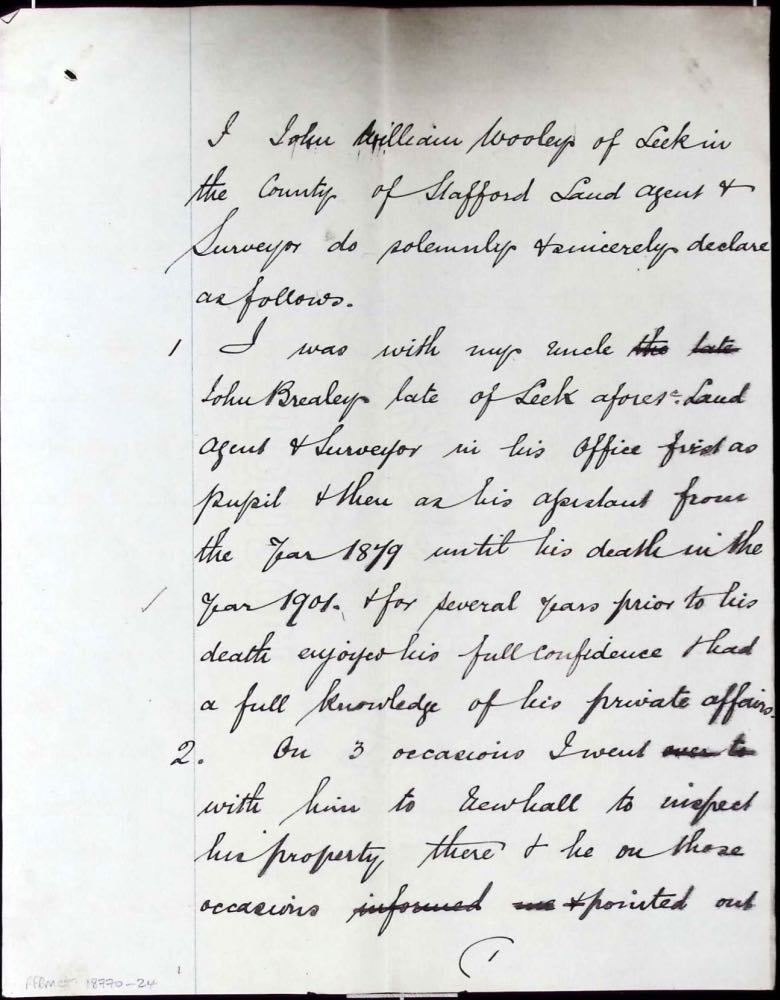 I John William Wooley of Leek in
the County of Stafford Land Agent &
Surveyor do solemnly & sincerely declare
as follows.
1 I was with my uncle the late
John Brealey late of Leek afores.d Land
Agent & Surveyor in his Office first as
pupil & then as his assistant from
the Year 1879 until his death in the
Year 1901. & for several years prior to his
death enjoyed his full confidence & had
a full knowledge of his private affairs.
2. On 3 occasions I went over to
with him to Newhall to inspect
his property there & he on those
occasions informed me & pointed out
1
18770-24